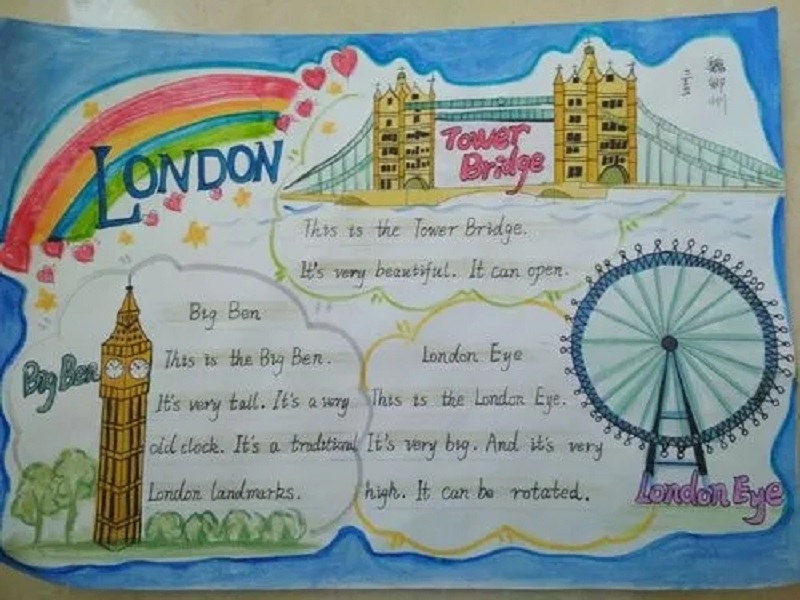 LONDON
Tower
Bridge
This is the Tower Bridge.
It's very beautiful. It can open.
Big Ben
Big Ben
This is the Big Ben.
It's very tall. It's a very
old clock. It's a traditional
London landmarks.
London Eye
This is the London Eye.
It's very big. And it's very
high. It can be rotated.
London Eye